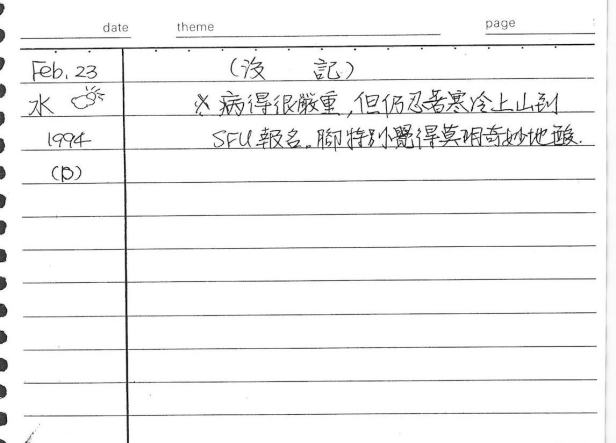 date theme page
Feb. 23 (沒 記)
水 ※ 病得很嚴重,但仍忍著寒冷上山到
1994 SFU 報名。腳特別覺得莫明奇妙地酸.
(B)